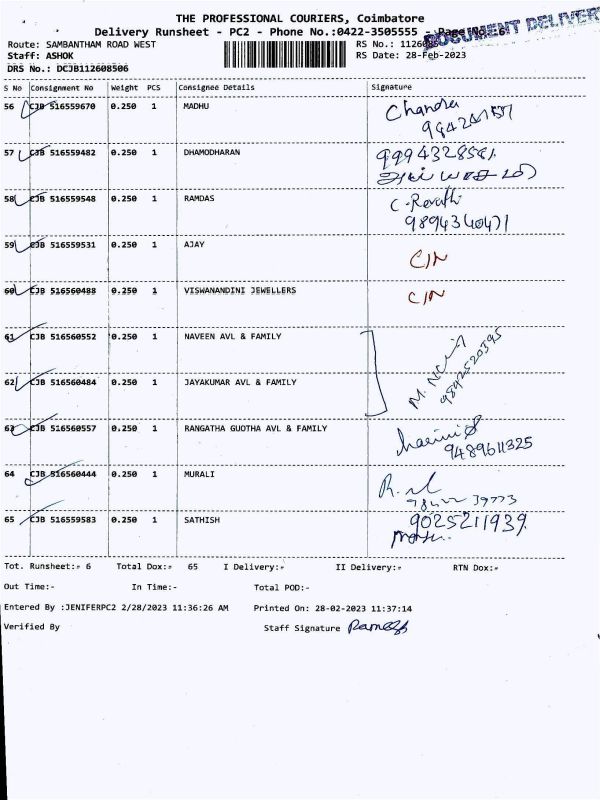 THE PROFESSIONAL COURIERS, Coimbatore
Delivery Runsheet - PC2 - Phone No.:0422-3505555 - Page No. 6
DOCUMENT DELIVERY
Route: SAMBANTHAM ROAD WEST
RS No.: 1126085
Staff: ASHOK
RS Date: 28-Feb-2023
DRS No.: DCJB112608506
S No Consignment No Weight PCS Consignee Details Signature
56 CJB 516559670 0.250 1 MADHU Chandra
57 CJB 516559482 0.250 1 DHAMODHARAN
58 CJB 516559548 0.250 1 RAMDAS C. Revathi
9894340471
59 CJB 516559531 0.250 1 AJAY C/N
60 CJB 516560488 0.250 1 VISWANANDINI JEWELLERS C/N
61 CJB 516560552 0.250 1 NAVEEN AVL & FAMILY
9892520395
62 CJB 516560484 0.250 1 JAYAKUMAR AVL & FAMILY
63 CJB 516560557 0.250 1 RANGATHA GUOTHA AVL & FAMILY
9489611325
64 CJB 516560444 0.250 1 MURALI
65 CJB 516559583 0.250 1 SATHISH 9025211939
Tot. Runsheet:- 6 Total Dox:- 65 I Delivery:- II Delivery:- RTN Dox:-
Out Time:- In Time:- Total POD:-
Entered By :JENIFERPC2 2/28/2023 11:36:26 AM Printed On: 28-02-2023 11:37:14
Verified By Staff Signature Ramesh